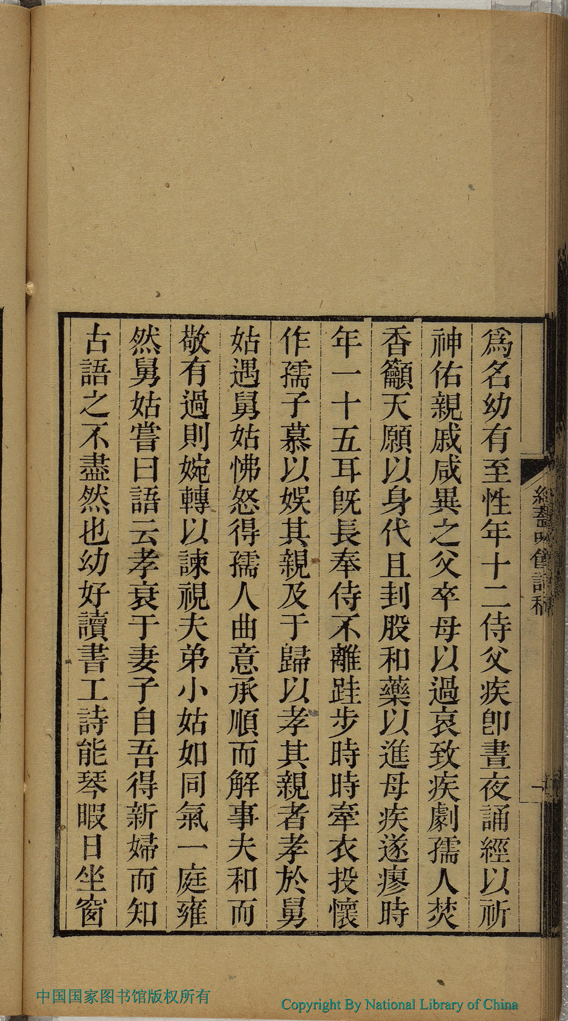 爲名幼有至性年十二侍父疾卽晝夜誦經以祈
神佑親戚咸異之父卒母以過哀致疾劇孺人焚
香籲天願以身代且刲股和藥以進母疾遂瘳時
年一十五耳旣長奉侍不離跬步時時牽衣投懷
作孺子慕以娛其親及于歸以孝其親者孝於舅
姑遇舅姑怫怒得孺人曲意承順而解事夫和而
敬有過則婉轉以諫視夫弟小姑如同氣一庭雍
然舅姑嘗曰語云孝衰于妻子自吾得新婦而知
古語之不盡然也幼好讀書工詩能琴暇日坐窗
中国国家图书馆版权所有
Copyright By National Library of China